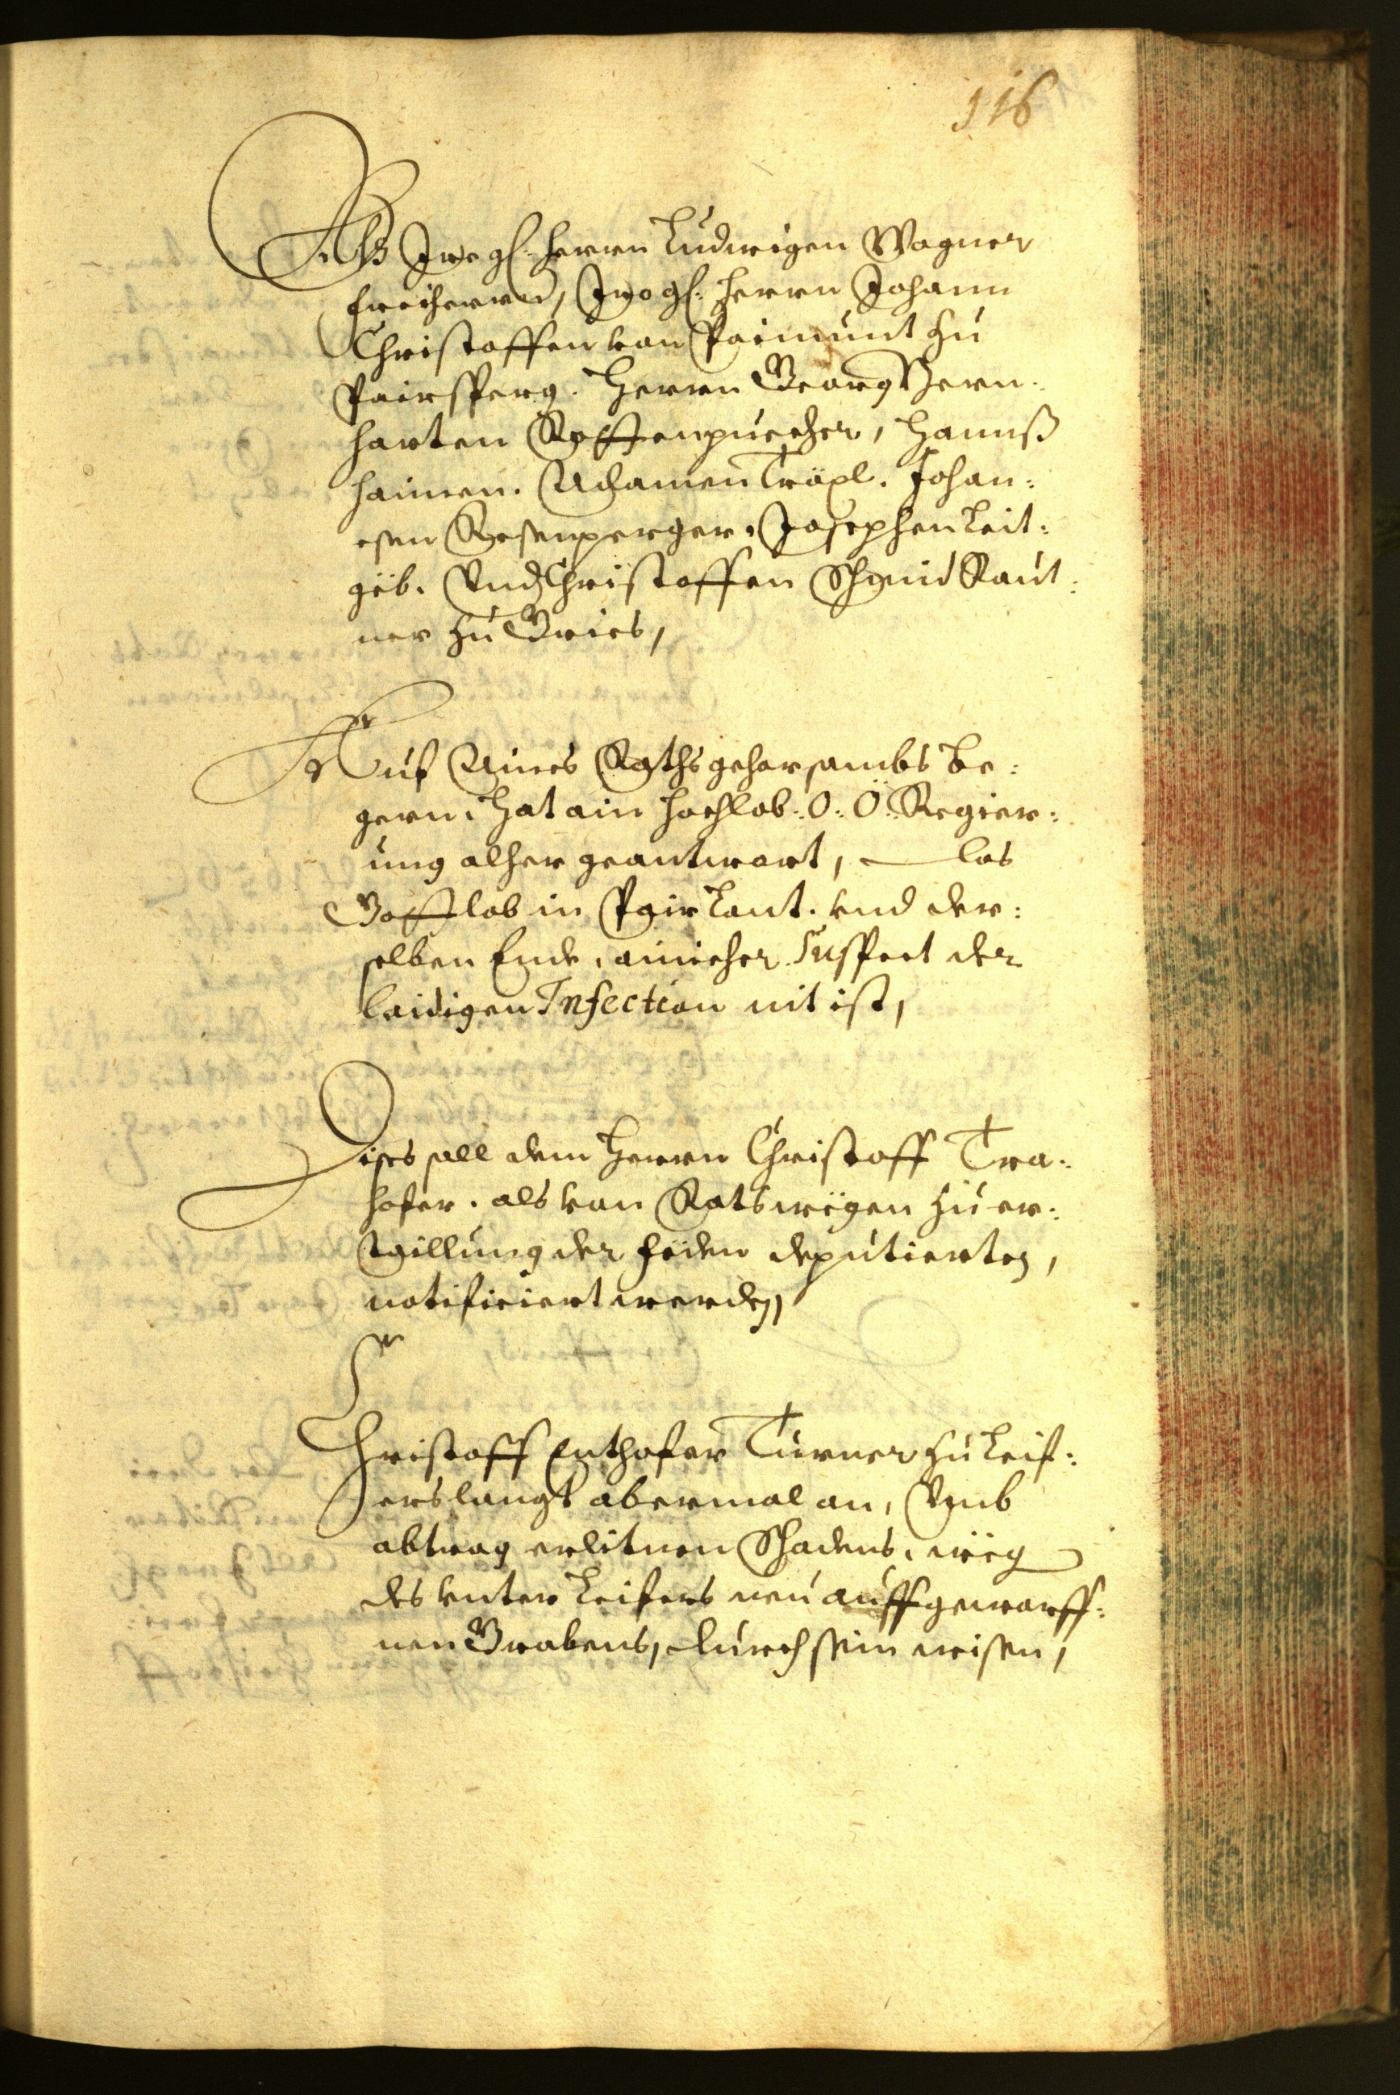 116
Alß Irro gl: Herrn Ludwigen Wagner
freiherrn, Irro gl: Herrn Johann
Christoffen von Paimunt zu
Pairsperg. Herrn Georg Bern:
harten Roffenpuecher, Hannß
Haimen. Adamen Träxl. Johan:
esen Rosenperger. Josephen Leit:
geb. Vnd Christoffen Schmid Raut:
ner zu Gries,
Auf Aines Raths gehorsambs be:
gern, hat ain hochlob: O: Ö: Regier:
ung alher geantwort, das
Gottlob in Pair Lant. vnd der:
selben Ende, ainicher Suspect der
laidigen Infection nit ist,
Dises soll dem Herrn Christoff Tra:
hofer. als von Rats wegen zu er:
thaillung der feden deputierten,
notificiert werden,
Christoff Enthofer Turner zu Leif:
ers langt abermal an, Vmb
abtrag erlitnen Schadens, weg
des vnter Leifers neu auffgeworff:
nen Grabens, durch sein wisen,